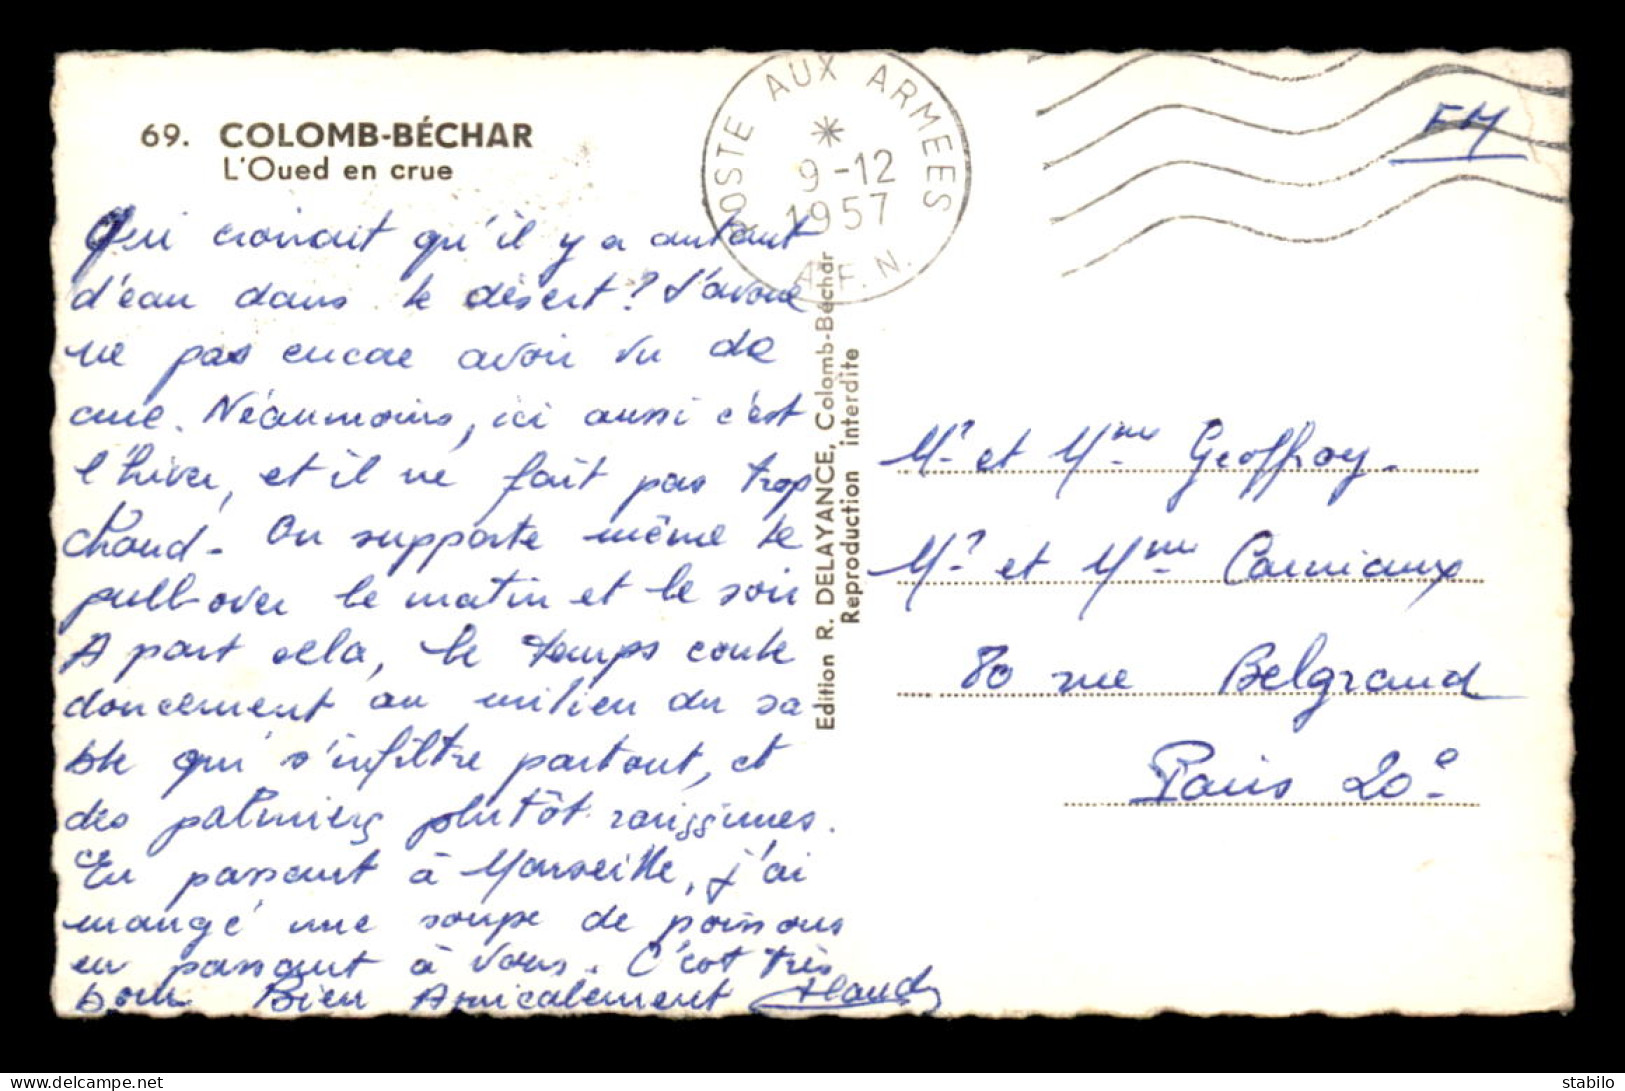 69. COLOMB-BÉCHAR
L'Oued en crue
POSTE AUX ARMEES
9-12
1957
A.F.N.
FM
Qui croirait qu'il y a autant
d'eau dans le désert? J'avoue
ne pas encore avoir vu de
crue. Néanmoins, ici aussi c'est
l'hiver, et il ne fait pas trop
chaud. On supporte même le
pull-over le matin et le soir
A part cela, le temps coule
doucement au milieu du sa
ble qui s'infiltre partout, et
des palmiers plutôt rarissimes.
En passant à Marseille, j'ai
mangé une soupe de poissons
en pensant à vous. C'est très
bon. Bien Amicalement
Edition R. DELAYANCE, Colomb-Béchar
Reproduction interdite
Mr et Mme Geoffroy.
Mr et Mme Carniaux
80 rue Belgrand
Paris 20e
delcampe.net
stabilo